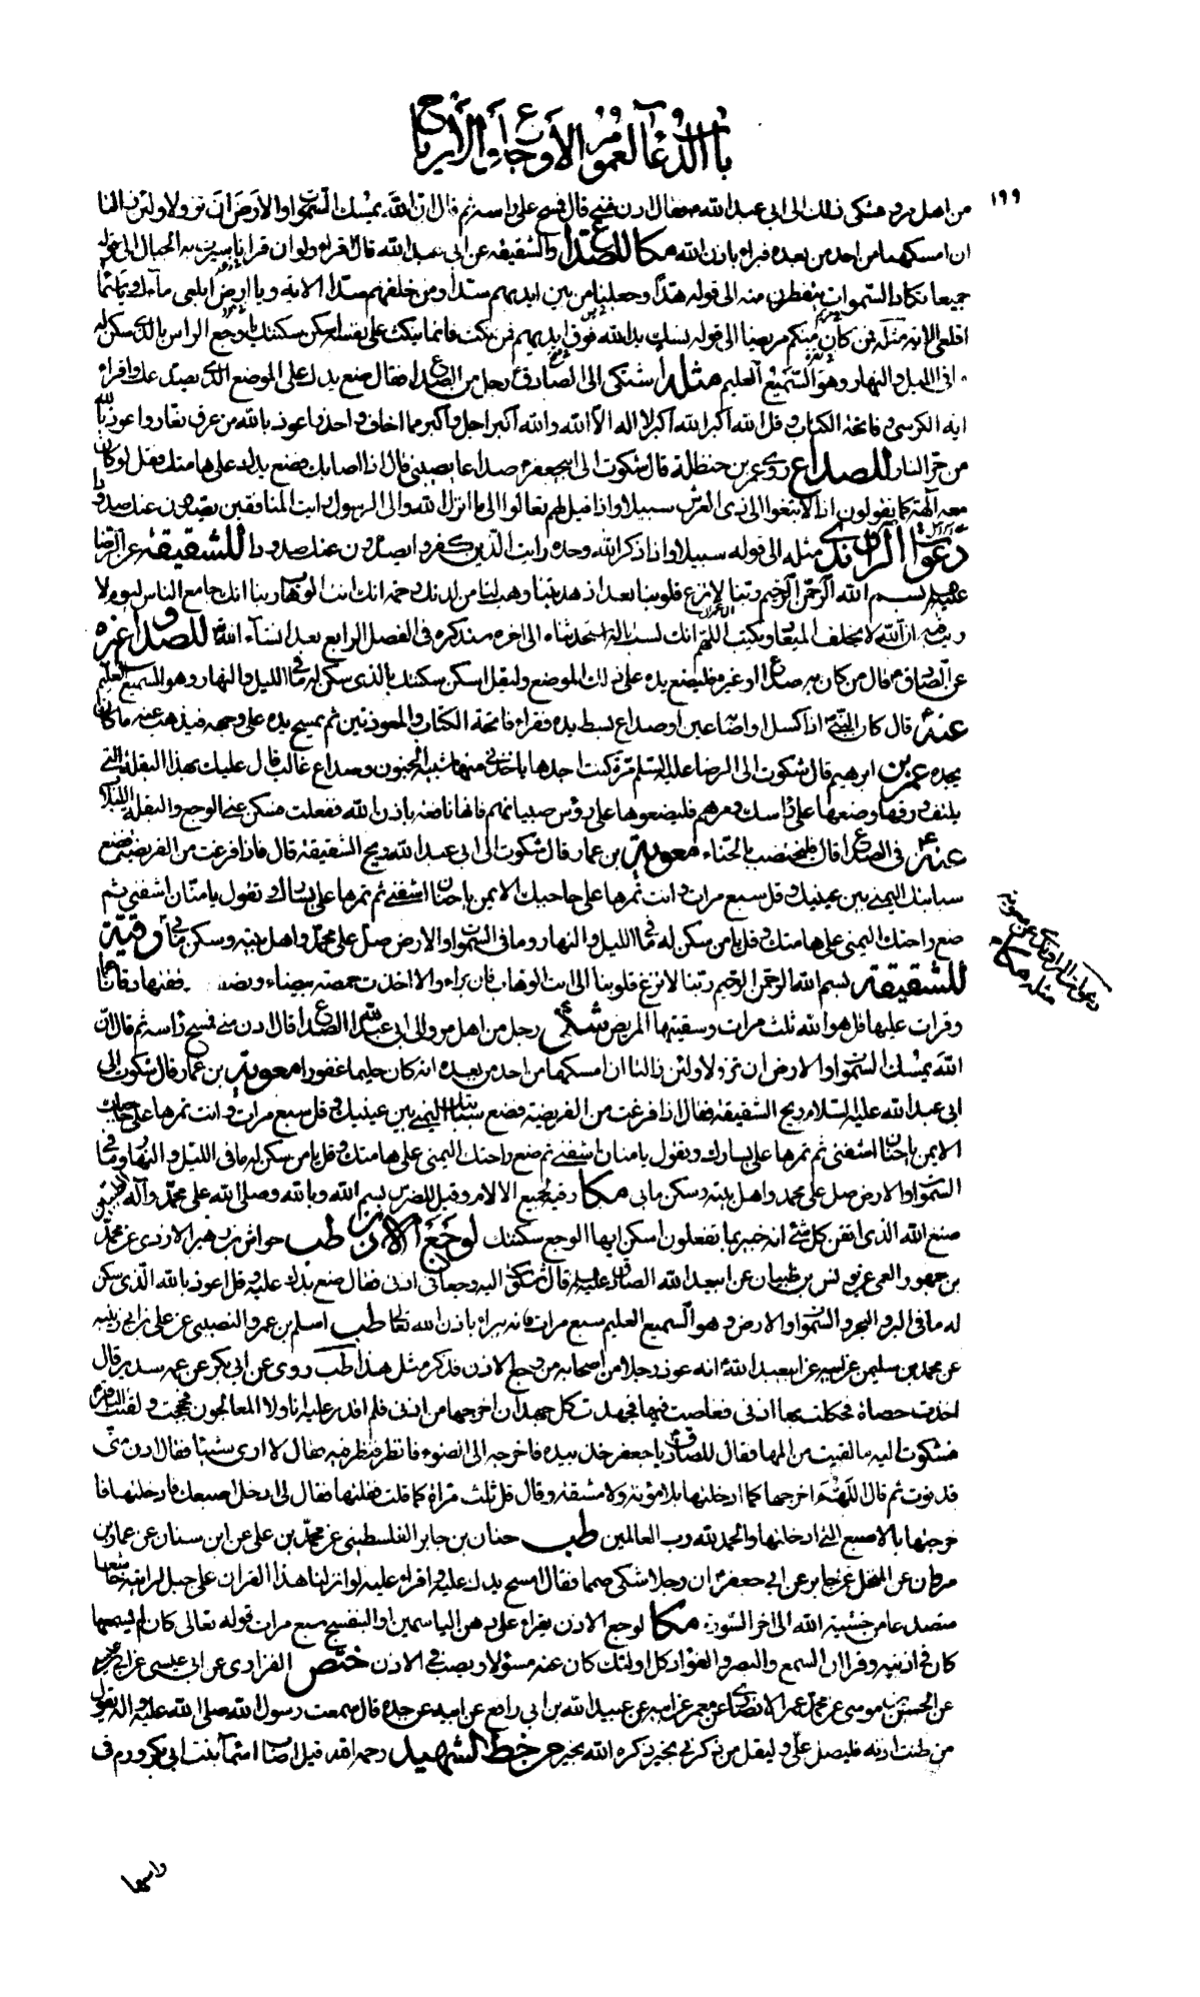 باب الدعاء لعموم الأوجاع والأرياح
١٩٩
من اهل مرو فشكى ذلك الى ابي عبد الله فقال ادن مني قال فمسح على راسه ثم قال ان الله يمسك السموات والارض ان تزولا ولئن زالتا
ان امسكهما من احد من بعده فبراء باذن الله مكا للصداع والشقيقة عن ابي عبد الله قال اقراء ولو ان قرانا سيرت به الجبال الى قوله
جميعا تكاد السموات يتفطرن منه الى قوله هدا وجعلنا من بين ايديهم سدا ومن خلفهم سدا الاية ويا ارض ابلعي ماءك ويا سماء
اقلعي الاية مثله فمن كان منكم مريضا الى قوله نسك يد الله فوق ايديهم فمن نكث فانما ينكث على نفسه اسكن سكنتك يا وجع الراس بالذي سكن له
ما في الليل والنهار وهو السميع العليم مثله اشتكى الى الصادق رجل من الصداع فقال ضع يدك على الموضع الذي يصدعك واقراء
اية الكرسي وفاتحة الكتاب وقل الله اكبر الله اكبر لا اله الا الله والله اكبر اجل واكبر مما اخاف واحذر اعوذ بالله من عرق نعار واعوذ بالله
من حر النار للصداع روى عمر بن حنظلة قال شكوت الى ابي جعفر صداعا يصيبني قال اذا اصابك فضع يدك على هامتك فقل لو كان
معه آلهة كما يقولون اذا لابتغوا الى ذي العرش سبيلا واذا قيل لهم تعالوا الى ما انزل الله والى الرسول رايت المنافقين يصدون عنك صدودا
دعوات الراوندي مثله الى قوله سبيلا واذا ذكر الله وحده رايت الذين كفروا يصدون عنك صدودا للشقيقة عن الرضا
عليه السلم بسم الله الرحمن الرحيم ربنا لا تزغ قلوبنا بعد اذ هديتنا وهب لنا من لدنك رحمة انك انت الوهاب ربنا انك جامع الناس ليوم لا
ريب فيه ان الله لا يخلف الميعاد ويكتب اللهم انك لست باله استحدثناه الى اخره سنذكره في الفصل الرابع بعد انشاء الله للصداع وغيره
عن الصادق قال من كان به صداع او غيره فليضع يده على ذلك الموضع وليقل اسكن سكنتك بالذي سكن له ما في الليل والنهار وهو السميع العليم
عنه قال كان النبي اذا كسل او اصابته عين او صداع بسط يده فقراء فاتحة الكتاب والمعوذتين ثم يمسح يده على وجهه فيذهب عنه ما كان
يجده عمر بن ابرهيم قال شكوت الى الرضا عليه السلم مرة كنت اجدها ياخذني منها شبه الجنون وصداع غالب قال عليك بهذا البقلة التي
يلتف ورقها وضعها على راسك ومرهم فليضعوها على رؤس صبيانهم فانها نافعة باذن الله ففعلت فسكن عني الوجع والبقلة اللبلاب
عنه في الصداع قال فليختضب بالحناء معوية بن عمار قال شكوت الى ابي عبد الله ريح الشقيقة قال فاذا فرغت من الفريضة فضع
سبابتك اليمنى بين عينيك وقل سبع مرات وانت تمرها على حاجبك الايمن يا حنان اشفني ثم تمرها على يسارك وتقول يا منان اشفني ثم
ضع راحتك اليمنى على هامتك وقل يا من سكن له ما في الليل والنهار وما في السموات والارض صل على محمد واهل بيته وسكن ما بي رقية
للشقيقة بسم الله الرحمن الرحيم ربنا لا تزغ قلوبنا الى انت الوهاب فان براء والا اخذت حمصة بيضاء ونصف
وقرات عليها قل هو الله ثلث مرات وسقيتها المريض شكى رجل من اهل مرو الى ابي عبد الله الصداع قال ادن مني فمسح راسه ثم قال ان
الله يمسك السموات والارض ان تزولا ولئن زالتا ان امسكهما من احد من بعده انه كان حليما غفورا معوية بن عمار قال شكوت الى
ابي عبد الله عليه السلام ريح الشقيقة فقال اذا فرغت من الفريضة فضع سبابتك اليمنى بين عينيك وقل سبع مرات وانت تمرها على حاجبك
الايمن يا حنان اشفني ثم تمرها على يسارك وتقول يا منان اشفني ثم ضع راحتك اليمنى على هامتك وقل يا من سكن له ما في الليل والنهار وما في
السموات والارض صل على محمد واهل بيته وسكن ما بي مكا رقية لجميع الالام وقيل للضرس بسم الله وبالله وصلى الله على محمد وآله الطيبين
صنع الله الذي اتقن كل شئ انه خبير بما تفعلون اسكن ايها الوجع سكنتك لوجع الاذن طب حواش بن زهير الازدي عن محمد
بن جمهور العمي عن يونس بن ظبيان عن ابي عبد الله الصادق عليه السلم قال شكوت اليه وجعا في اذني فقال ضع يدك عليه وقل اعوذ بالله الذي سكن
له ما في البر والبحر والسموات والارض وهو السميع العليم سبع مرات فانه يبراء باذن الله تعالى طب اسلم بن عمرو النصيبي عن علي بن ابي زينبة
عن محمد بن سليمن عن ابيه عن ابي عبد الله انه عوذ رجلا من اصحابه من وجع الاذن فذكر مثل هذا طب روى عن ابي بكر عن عمه سدير قال
اخذت حصاة فحككت بها اذني فغاصت فيها فجهدت كل جهد ان اخرجها من اذني فلم اقدر عليه انا ولا المعالجون فحججت ولقيت الباقر
فشكوت اليه ما لقيت من المها فقال للصادق يا جعفر خذ بيده فاخرجه الى الضوء فانظر فيه فنظر فيه فقال لا ارى شيئا فقال ادن مني
فدنوت ثم قال اللهم اخرجها كما ادخلتها بلا مؤنة ولا مشقة وقال قل ثلث مرات كما قلت فقلتها فقال لي ادخل اصبعك فادخلتها فا
خرجتها بالاصبع التي ادخلتها والحمد لله رب العالمين طب حنان بن جابر الفلسطيني عن محمد بن علي عن ابن سنان عن عمار بن
مروان عن المنخل عن جابر عن ابي جعفر ان رجلا شكى صمما فقال امسح يدك عليه واقراء عليه لو انزلنا هذا القران على جبل لرايته خاشعا
متصدعا من خشية الله الى اخر السورة مكا لوجع الاذن يقراء على دهن الياسمين او البنفسج سبع مرات قوله تعالى كان لم يسمعها
كان في اذنيه وقرا ان السمع والبصر والفؤاد كل اولئك كان عنه مسؤلا ويصب في الاذن ختص الفزاري عن ابي عيسى عن
عن الحسين بن موسى عن محمد بن الانصاري عن معمر عن ابيه عن عبيد الله بن ابي رافع عن ابيه عن جده قال سمعت رسول الله صلى الله عليه واله يقول
من طنت اذنه فليصل علي وليقل من ذكرني بخير ذكره الله بخير من خط الشهيد رحمه الله قيل اصاب اسماء بنت ابي بكر ورم في
دعوات الراوندي عن معوية مثله مكا
راسها